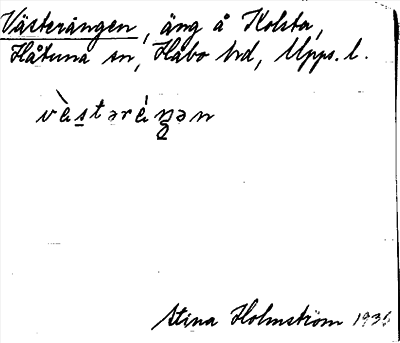 Västerängen, äng å Kolsta,
Håtuna sn, Håbo hd, Upps. l.
vèstəréŋən
Stina Holmström 1936